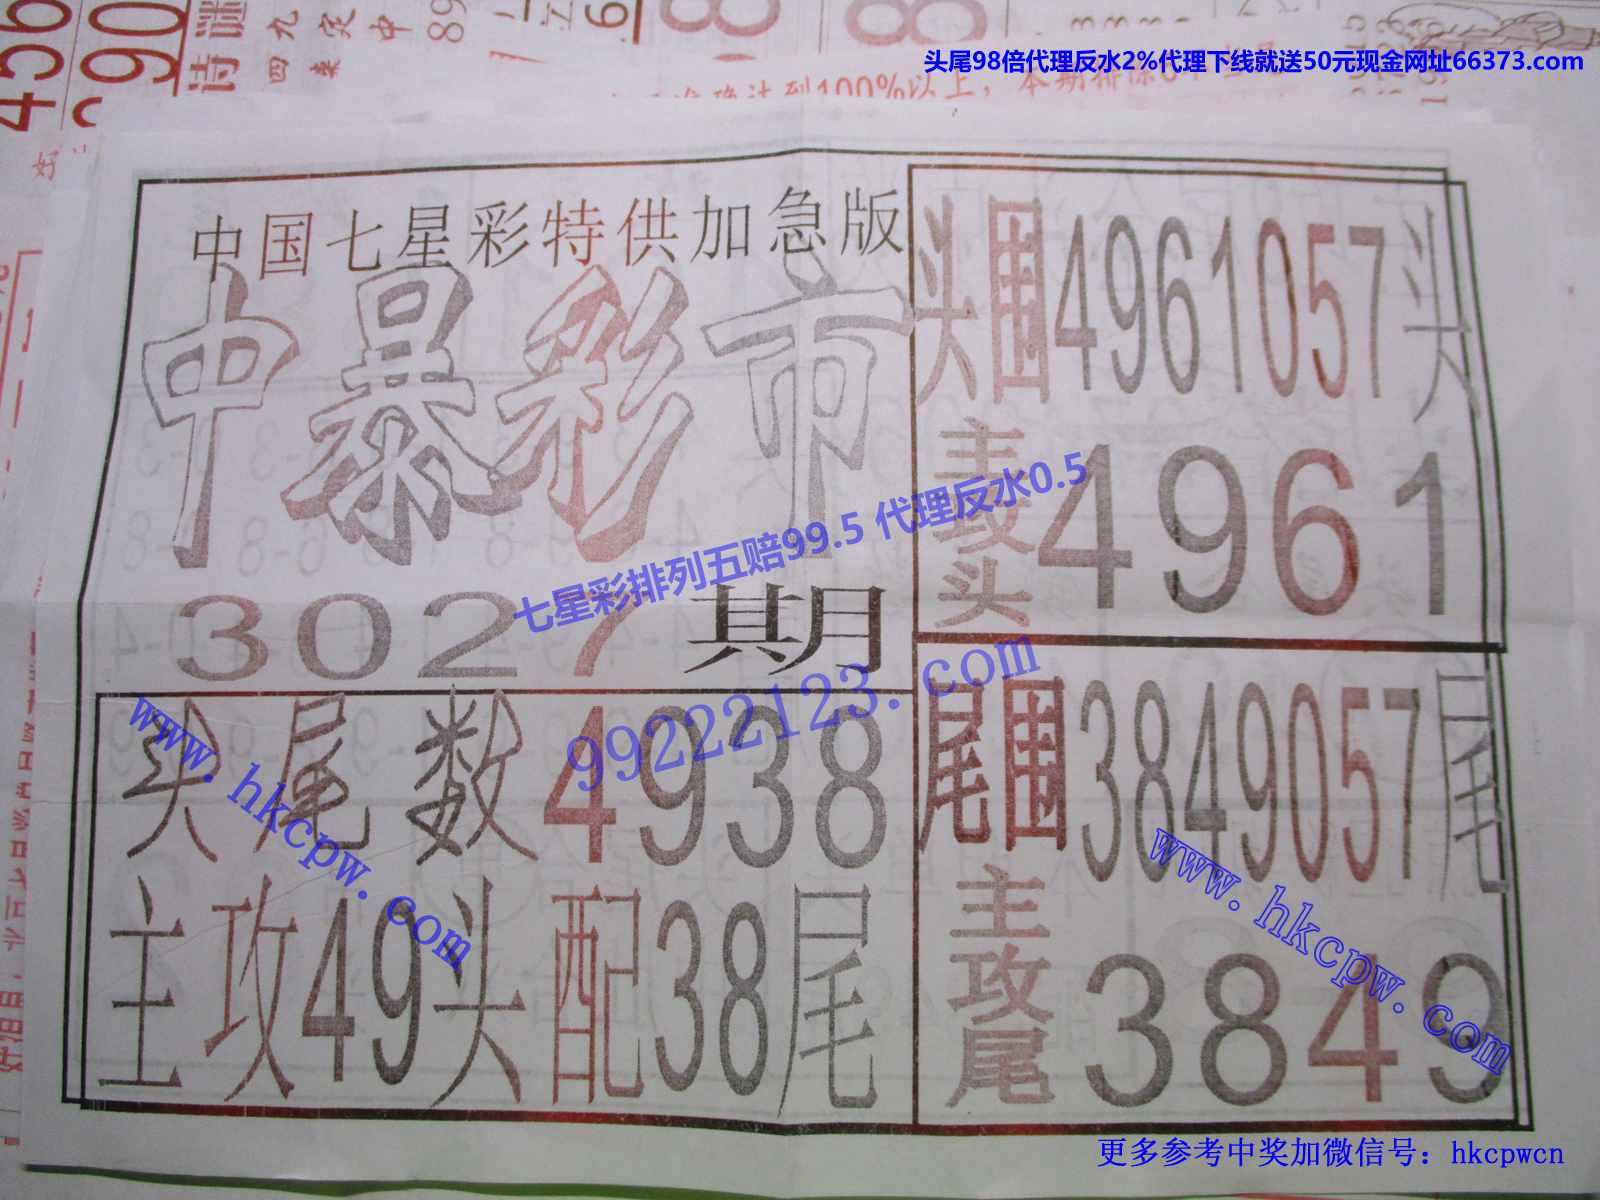 头尾98倍代理反水2%代理下线就送50元现金网址66373.com
中国七星彩特供加急版
中暴彩市
3027期
头尾数4938
主攻49头配38尾
头围4961057头
主攻头4961
尾围3849057尾
主攻尾3849
七星彩排列五赔99.5 代理反水0.5
99222123.com
www.hkcpw.com
www.hkcpw.com
更多参考中奖加微信号：hkcpwcn